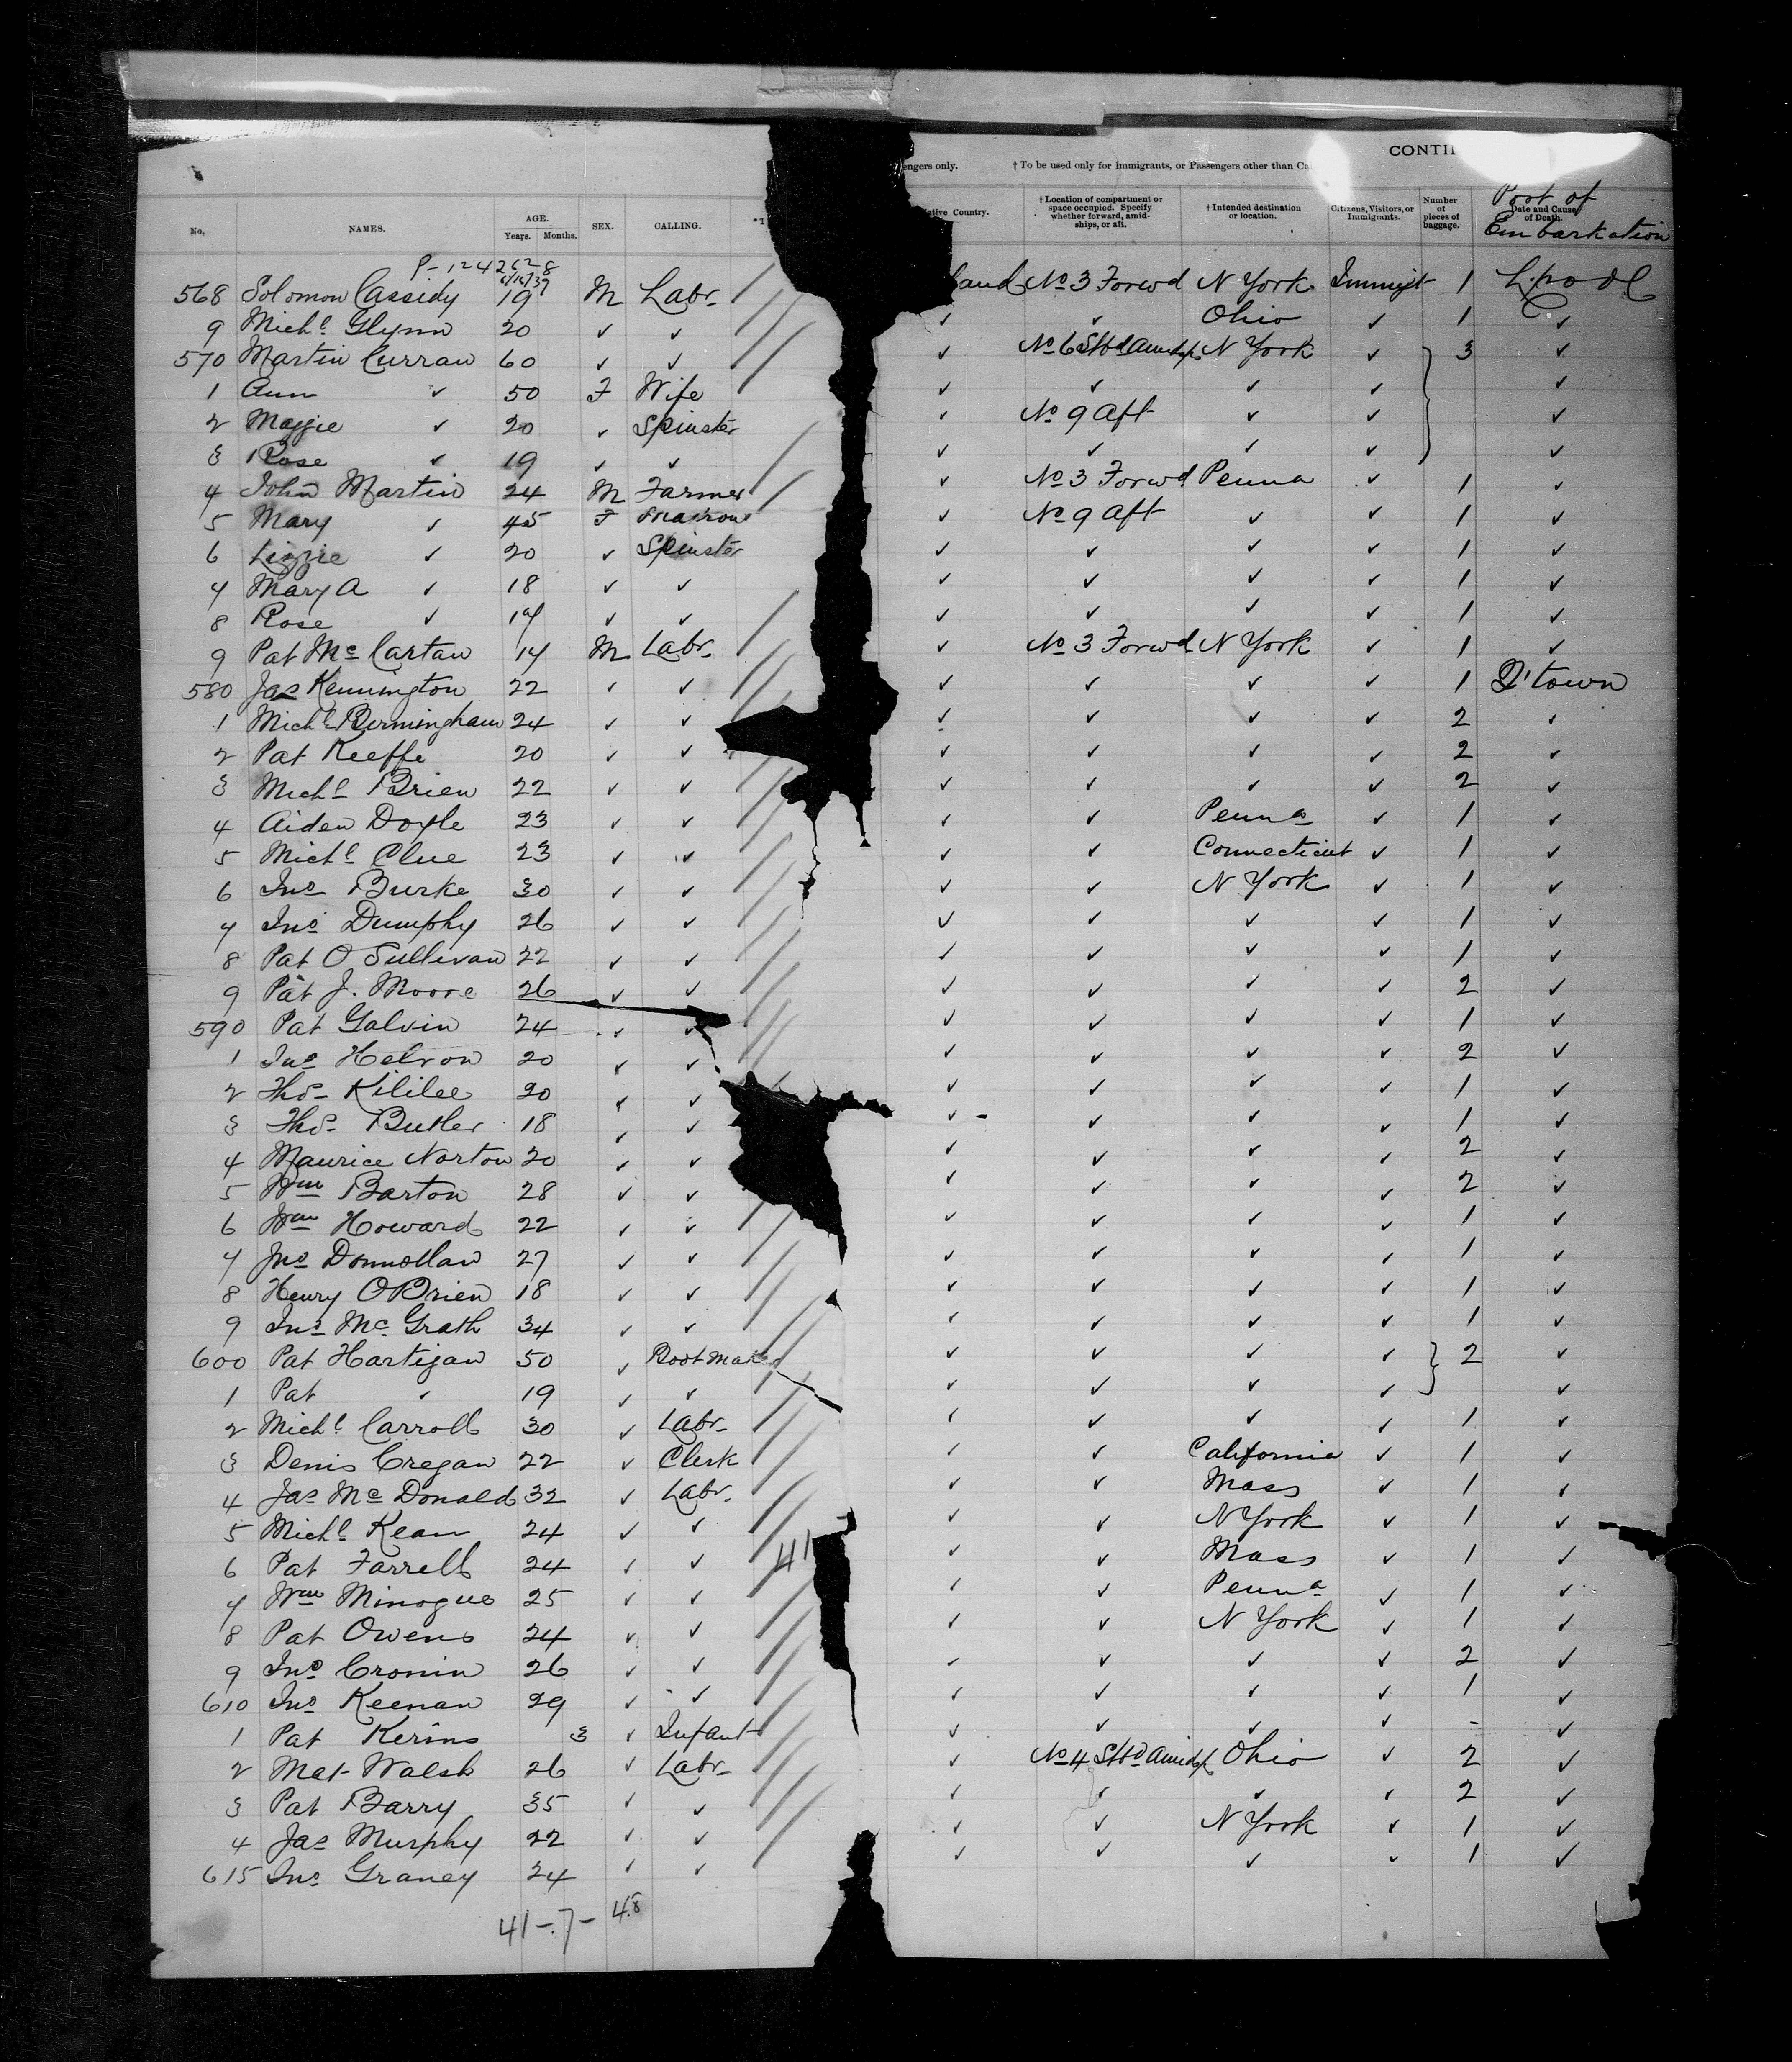 CONTI
engers only. † To be used only for Immigrants, or Passengers other than Ca
No. NAMES. AGE. Years. Months. SEX. CALLING. ative Country. † Location of compartment or space occupied. Specify whether forward, amidships, or aft. † Intended destination or location. Citizens, Visitors, or Immigrants. Number of pieces of baggage. Date and Cause of Death. Port of Embarkation
P-1242628
568 Solomon Cassidy 19 M Labr. land No 3 Forwd N York Immigt 1 L.pool
9 Michl Glynn 20 ✓ ✓ ✓ ✓ Ohio ✓ 1 ✓
570 Martin Curran 60 ✓ ✓ ✓ No 6 Stbd Amidsps N York ✓ 3 ✓
1 Ann ✓ 50 F Wife ✓ ✓ ✓ ✓ ✓
2 Maggie ✓ 20 ✓ Spinster ✓ No 9 Aft ✓ ✓ ✓
3 Rose ✓ 19 ✓ ✓ ✓ ✓ ✓ ✓ ✓
4 John Martin 24 M Farmer ✓ No 3 Forwd Penna ✓ 1 ✓
5 Mary ✓ 45 F Matron ✓ No 9 Aft ✓ ✓ 1 ✓
6 Lizzie ✓ 20 ✓ Spinster ✓ ✓ ✓ ✓ 1 ✓
7 Mary A ✓ 18 ✓ ✓ ✓ ✓ ✓ ✓ 1 ✓
8 Rose ✓ 17 ✓ ✓ ✓ ✓ ✓ ✓ 1 ✓
9 Pat Mc Cartan 17 M Labr. ✓ No 3 Forwd N York ✓ 1 ✓
580 Jas Kennington 22 ✓ ✓ ✓ ✓ ✓ ✓ 1 Q'town
1 Michl Bermingham 24 ✓ ✓ ✓ ✓ ✓ ✓ 2 ✓
2 Pat Keeffe 20 ✓ ✓ ✓ ✓ ✓ ✓ 2 ✓
3 Michl Brien 22 ✓ ✓ ✓ ✓ ✓ ✓ 2 ✓
4 Aiden Doyle 23 ✓ ✓ ✓ ✓ Penna ✓ 1 ✓
5 Michl Clue 23 ✓ ✓ ✓ ✓ Connecticut ✓ 1 ✓
6 Jno Burke 30 ✓ ✓ ✓ ✓ N York ✓ 1 ✓
7 Jno Dumphy 26 ✓ ✓ ✓ ✓ ✓ ✓ 1 ✓
8 Pat O Sullivan 22 ✓ ✓ ✓ ✓ ✓ ✓ 1 ✓
9 Pat J. Moore 26 ✓ ✓ ✓ ✓ ✓ ✓ 2 ✓
590 Pat Galvin 24 ✓ ✓ ✓ ✓ ✓ ✓ 1 ✓
1 Jno Helron 20 ✓ ✓ ✓ ✓ ✓ ✓ 2 ✓
2 Thos Kililee 20 ✓ ✓ ✓ ✓ ✓ ✓ 1 ✓
3 Thos Butler 18 ✓ ✓ ✓ ✓ ✓ ✓ 1 ✓
4 Maurice Norton 20 ✓ ✓ ✓ ✓ ✓ ✓ 2 ✓
5 Wm Barton 28 ✓ ✓ ✓ ✓ ✓ ✓ 2 ✓
6 Wm Howard 22 ✓ ✓ ✓ ✓ ✓ ✓ 1 ✓
7 Jno Donnollan 27 ✓ ✓ ✓ ✓ ✓ ✓ 1 ✓
8 Henry OBrien 18 ✓ ✓ ✓ ✓ ✓ ✓ 1 ✓
9 Jno Mc Grath 34 ✓ ✓ ✓ ✓ ✓ ✓ 1 ✓
600 Pat Hartigan 50 ✓ Boot Maker ✓ ✓ ✓ ✓ 2 ✓
1 Pat ✓ 19 ✓ ✓ ✓ ✓ ✓ ✓ ✓
2 Michl Carroll 30 ✓ Labr. ✓ ✓ ✓ ✓ 1 ✓
3 Denis Cregan 22 ✓ Clerk ✓ ✓ California ✓ 1 ✓
4 Jas Mc Donald 32 ✓ Labr. ✓ ✓ Mass ✓ 1 ✓
5 Michl Kean 24 ✓ ✓ ✓ ✓ N York ✓ 1 ✓
6 Pat Farrell 24 ✓ ✓ 41 ✓ ✓ Mass ✓ 1 ✓
7 Wm Minogue 25 ✓ ✓ ✓ ✓ Penna ✓ 1 ✓
8 Pat Owens 24 ✓ ✓ ✓ ✓ N York ✓ 1 ✓
9 Jno Cronin 26 ✓ ✓ ✓ ✓ ✓ ✓ 2 ✓
610 Jno Keenan 29 ✓ ✓ ✓ ✓ ✓ ✓ 1 ✓
1 Pat Kerins 3 ✓ Infant ✓ ✓ ✓ ✓ - ✓
2 Mat Walsh 26 ✓ Labr. ✓ No 4 Stbd Amidsps Ohio ✓ 2 ✓
3 Pat Barry 35 ✓ ✓ ✓ ✓ ✓ ✓ 2 ✓
4 Jas Murphy 22 ✓ ✓ ✓ ✓ N York ✓ 1 ✓
615 Jno Graney 24 ✓ ✓ ✓ ✓ ✓ ✓ 1 ✓
41-7-48